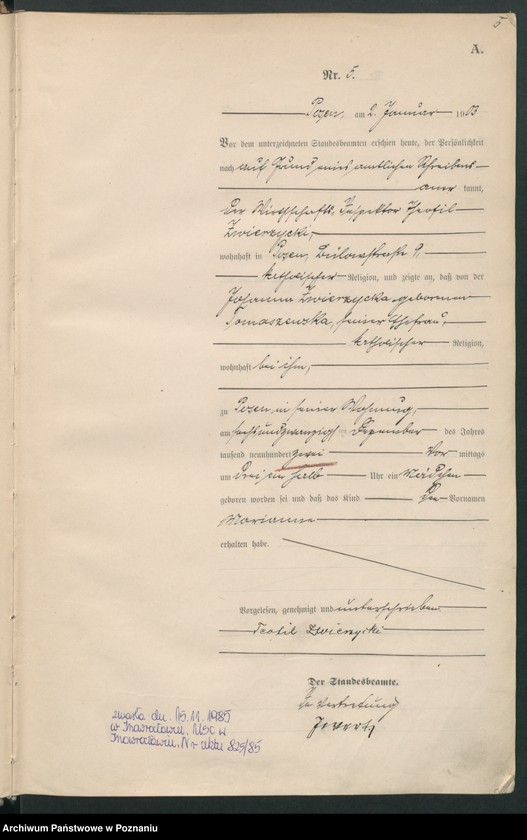 5
A.
Nr. 5.
Posen, am 2. Januar 1903
Vor dem unterzeichneten Standesbeamten erschien heute, der Persönlichkeit
nach auf Grund eines amtlichen Schreibens
aner kannt,
der Wirthschafts-Inspektor Theofil
Zwierzycki,
wohnhaft in Posen, Bülowstraße 9,
katholischer Religion, und zeigte an, daß von der
Johanna Zwierzycka geborenen
Tomaszewska, seiner Ehefrau,
katholischer Religion,
wohnhaft bei ihm,
zu Posen, in seiner Wohnung,
am sechsundzwanzigst Dezember des Jahres
tausend neunhundert zwei Vor mittags
um drei ein halb Uhr ein Mädchen
geboren worden sei und daß das Kind den Vornamen
Marianne
erhalten habe.
Vorgelesen, genehmigt und unterschrieben
Teofil Zwierzycki
Der Standesbeamte.
In Vertretung
zmarła dn. 15.11.1985
w Inowrocławiu. USC w
Inowrocławiu. Nr aktu 825/85
Archiwum Państwowe w Poznaniu